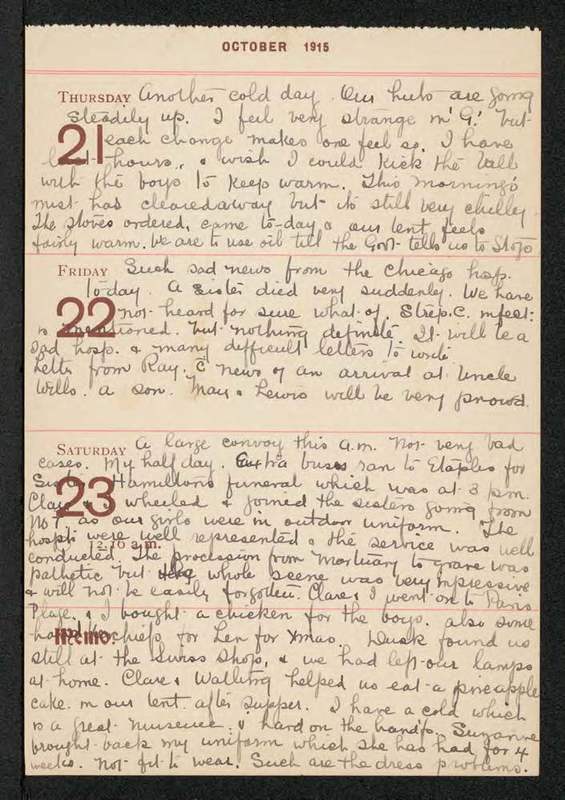 OCTOBER 1915
THURSDAY Another cold day. Our huts are going
21 steadily up. I feel very strange in 'G.' but
each change makes one feel so. I have
hours, & wish I could kick the ball
with the boys to keep warm. This morning's
mist has cleared away but its still very chilley.
The stoves ordered, came to-day & our tent feels
fairly warm. We are to use oil till the Govt tells us to stop
FRIDAY Such sad news from the Chicago hosp.
22 to day. A sister died very suddenly. We have
not heard for sure what of. Strep. C. infect:
is mentioned. but nothing definite It will be a
sad hosp. & many difficult letters to write
Letter from Ray. c̄ news of an arrival at Uncle
Wells. a son. May & Lewis will be very proud.
SATURDAY A large convoy this a.m. Not very bad
23 cases. My half day. Extra buses ran to Etaples for
Sister Hamilton's funeral which was at 3 p.m.
Clare & I wheeled & joined the sisters going from
No 7, as our girls were in outdoor uniform. The
hospts were well represented & the service was well
conducted. The procession from Mortuary to grave was
pathetic but the whole scene was very impressive
& will not be easily forgotten. Clare & I went on to Paris
Plage, & I bought a chicken for the boys. also some
Memo.
for Len for Xmas. Dusk found us
still at the Swiss Shop, & we had left our lamps
at home. Clare & Watling helped us eat a pineapple
cake in our tent after supper. I have a cold which
is a great nuisence, & hard on the handfs. Suzanne
brought back my uniform which she has had for 4
weeks. Not fit to wear. Such are the dress problems.